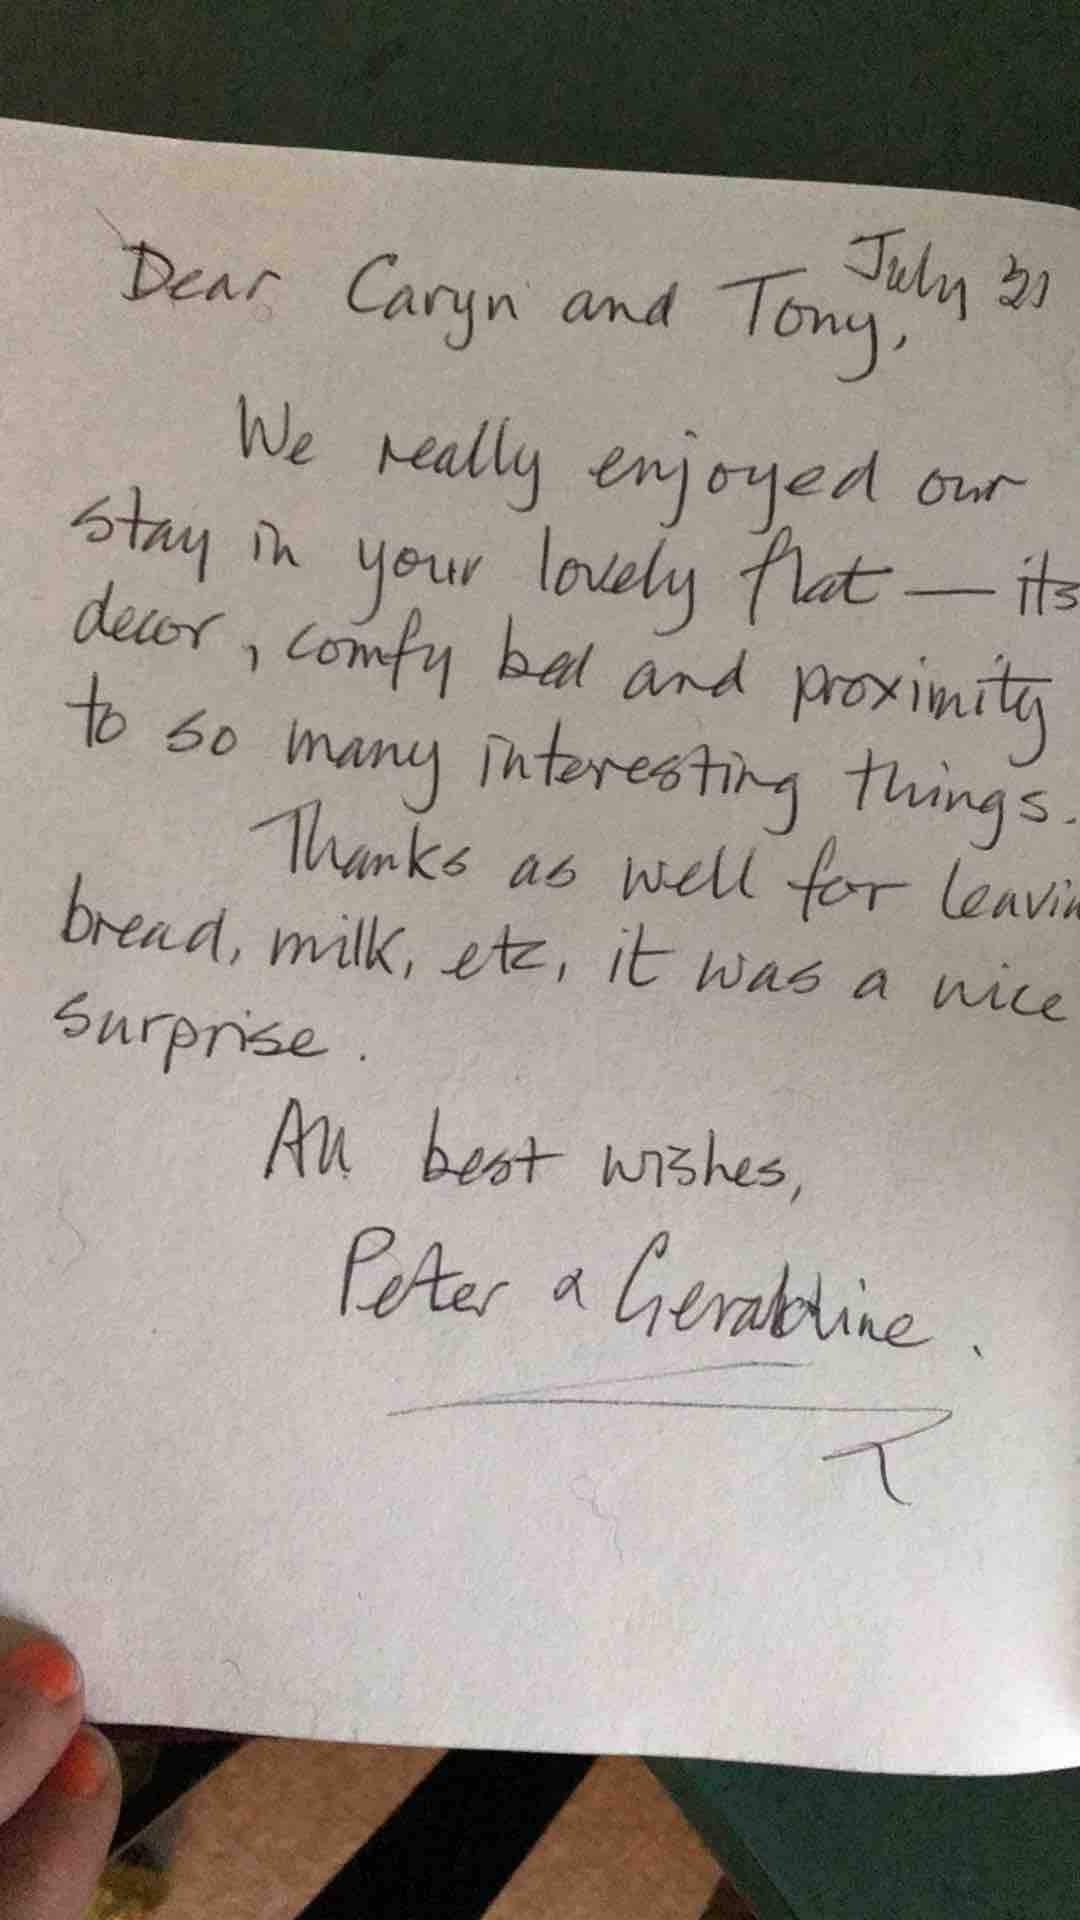 July 31
Dear Caryn and Tony,
We really enjoyed our
stay in your lovely flat — its
decor, comfy bed and proximity
to so many interesting things.
Thanks as well for leavin
bread, milk, etc, it was a nice
surprise.
All best wishes,
Peter & Geraldine.